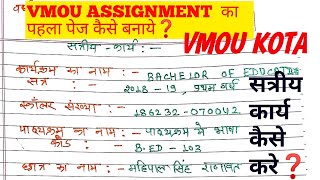 VMOU ASSIGNMENT का
पहला पेज कैसे बनाये?
VMOU KOTA
सत्रीय - कार्य :-
कार्यक्रम का नाम :- BACHELOR OF EDUCATION
सत्र :- 2018-19, प्रथम वर्ष
स्कॉलर संख्या :- 186232-070042
पाठ्यक्रम का नाम :- पाठ्यक्रम में भाषा
कोड :- B.ED-103
छात्र का नाम :- महिपाल सिंह राणावत
सत्रीय
कार्य
कैसे
करे?